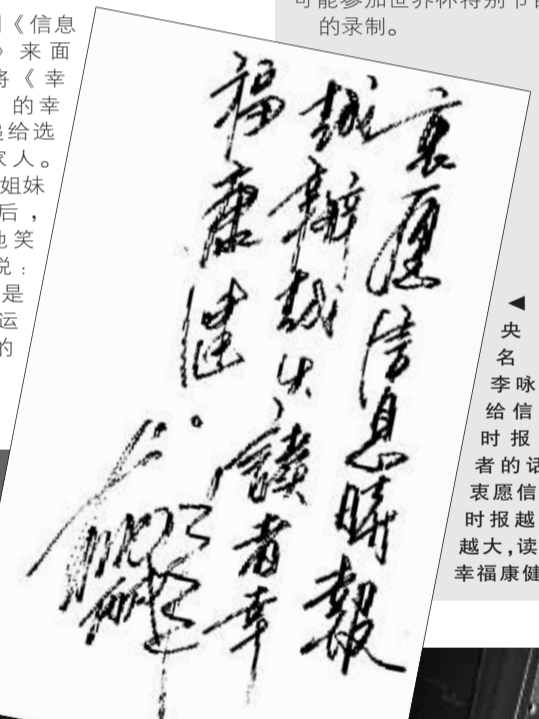 可能参加世界杯特别节目
的录制。
《信息
》来面
将《幸
的幸
给选
家人。
姐妹
后，
他笑
说：
是
运
的
衷愿信息時報
越辦越大，讀者幸
福康健。
◀
央
名
李咏
给信
时报
者的话
衷愿信
时报越
越大,读
幸福康健